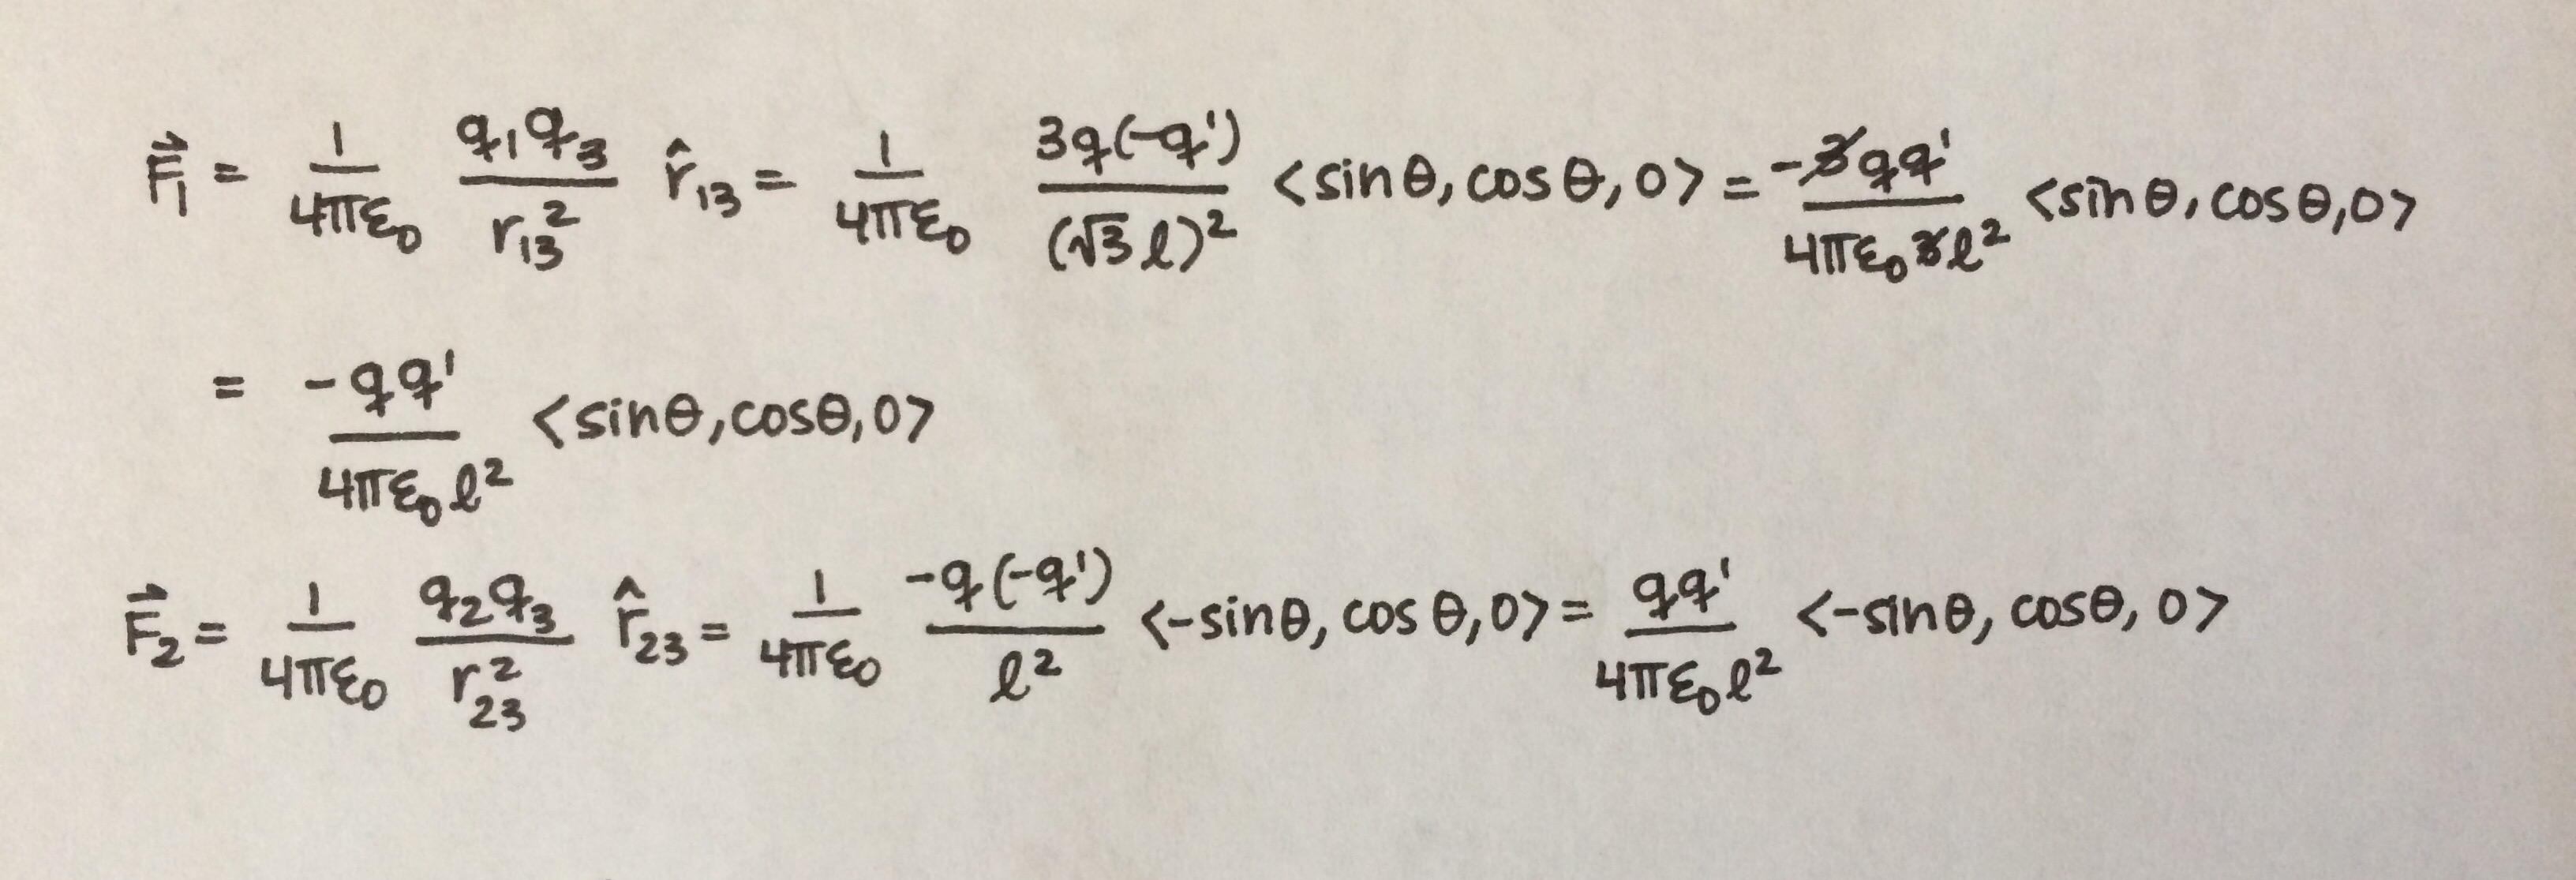 $\vec{F}_1 = \frac{1}{4\pi\varepsilon_0} \frac{q_1 q_3}{r_{13}^2} \hat{r}_{13} = \frac{1}{4\pi\varepsilon_0} \frac{3q(-q')}{(\sqrt{3}\,l)^2} \langle \sin\theta, \cos\theta, 0 \rangle = \frac{-\cancel{3}qq'}{4\pi\varepsilon_0 \cancel{3} l^2} \langle \sin\theta, \cos\theta, 0 \rangle$
$= \frac{-qq'}{4\pi\varepsilon_0 l^2} \langle \sin\theta, \cos\theta, 0 \rangle$
$\vec{F}_2 = \frac{1}{4\pi\varepsilon_0} \frac{q_2 q_3}{r_{23}^2} \hat{r}_{23} = \frac{1}{4\pi\varepsilon_0} \frac{-q(-q')}{l^2} \langle -\sin\theta, \cos\theta, 0 \rangle = \frac{qq'}{4\pi\varepsilon_0 l^2} \langle -\sin\theta, \cos\theta, 0 \rangle$